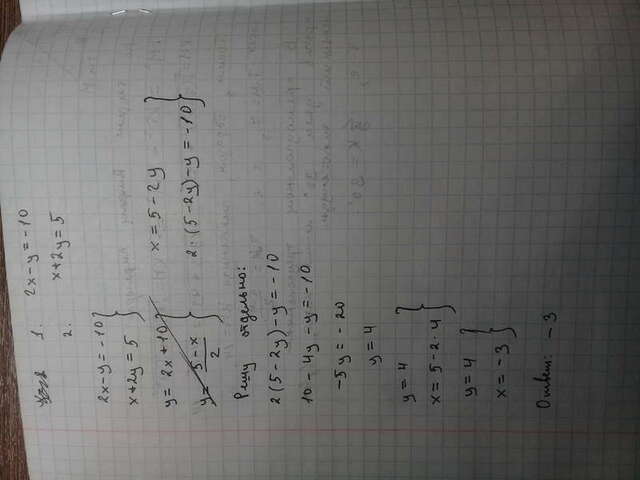 1. 2x-y=-10
2. x+2y=5
2x-y=-10
x+2y=5
y=2x+10
y=5-x/2
x=5-2y
2·(5-2y)-y=-10
Решу отдельно:
2(5-2y)-y=-10
10-4y-y=-10
-5y=-20
y=4
y=4
x=5-2·4
y=4
x=-3
Ответ: -3